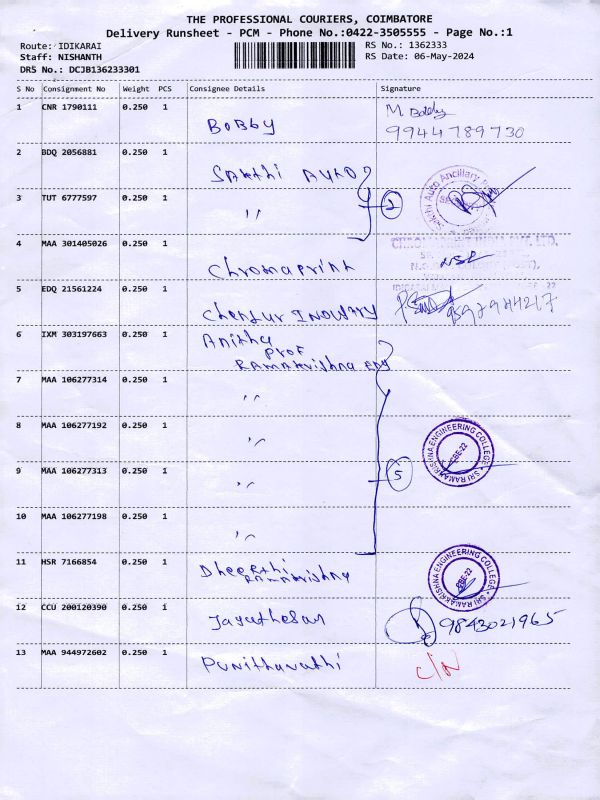 THE PROFESSIONAL COURIERS, COIMBATORE
Delivery Runsheet - PCM - Phone No.:0422-3505555 - Page No.:1
Route: IDIKARAI
RS No.: 1362333
Staff: NISHANTH
RS Date: 06-May-2024
DRS No.: DCJB136233301
S No Consignment No Weight PCS Consignee Details Signature
1 CNR 1790111 0.250 1 BOBBY M. Bobby
9944789730
2 BDQ 2056881 0.250 1 SAKthi AUtO
3 TUT 6777597 0.250 1 " 2
Sakthi Auto Ancillary
4 MAA 301405026 0.250 1 Chromaprint
5 EDQ 21561224 0.250 1 Chentur INDUstry
6 IXM 303197663 0.250 1 Anitha
Prof
RAMAKrishna Eng
7 MAA 106277314 0.250 1 "
8 MAA 106277192 0.250 1 "
SRI RAMAKRISHNA ENGINEERING COLLEGE
CBE-22
9 MAA 106277313 0.250 1 " 5
10 MAA 106277198 0.250 1 "
11 HSR 7166854 0.250 1 Dheerthi
RAMAKrishna
SRI RAMAKRISHNA ENGINEERING COLLEGE
CBE-22
12 CCU 200120390 0.250 1 Jayathesan 9843021965
13 MAA 944972602 0.250 1 Punithavathi C/N